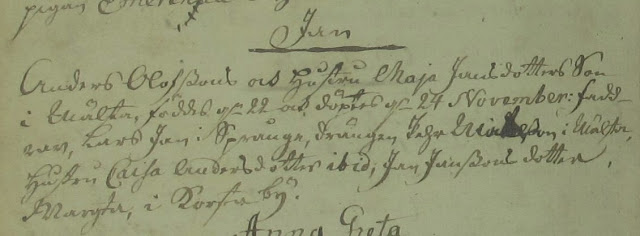 pigan
Jan
Anders Olofssons och Hustru Maja Jansdotters Son
i Mälta, föddes d. 22 och döptes d. 24 November: fadd-
rar, Lars Jan i Sprauge, drängen Pehr i Mälta,
Hustru Caisa Andersdotter ibid, Jan Janssons dotter,
Margta, i Korsta by.
Anna Greta